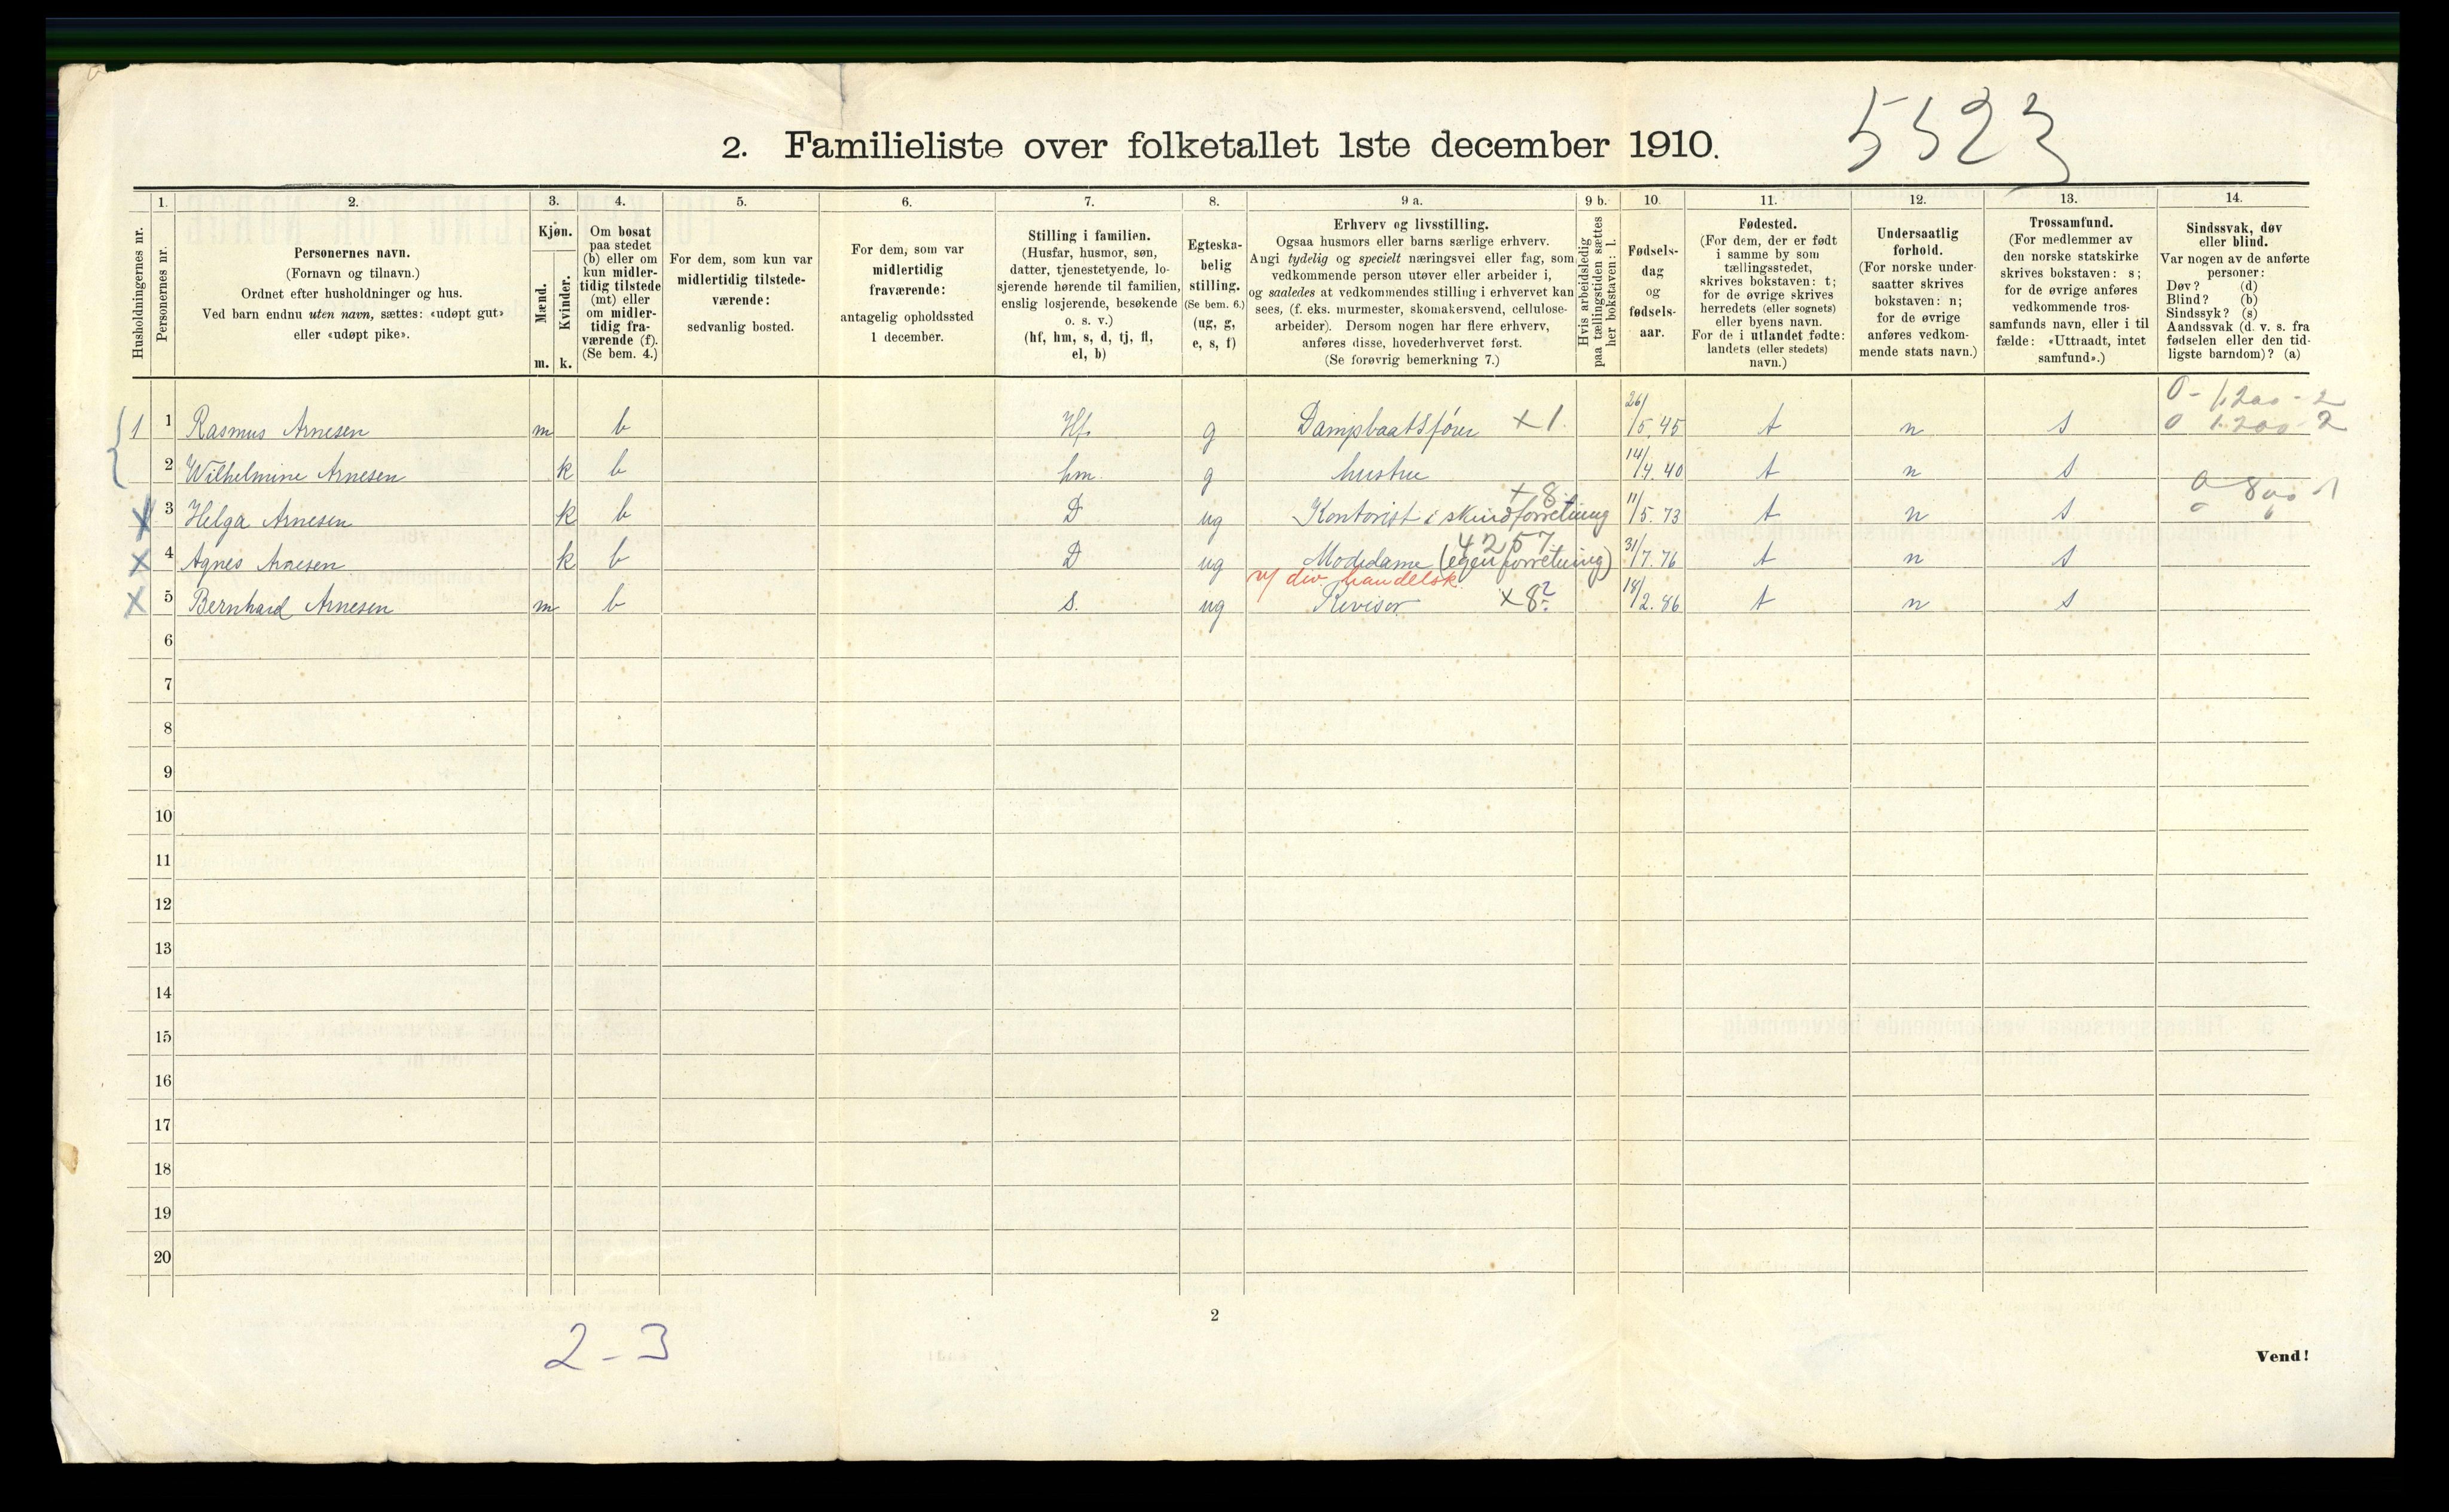 5523
2. Familieliste over folketallet 1ste december 1910.
1. 2. 3. 4. 5. 6. 7. 8. 9 a. 9 b. 10. 11. 12. 13. 14.
Husholdningernes nr.
Personernes nr.
Personernes navn.
(Fornavn og tilnavn.)
Ordnet efter husholdninger og hus.
Ved barn endnu uten navn, sættes: «udøpt gut»
eller «udøpt pike».
Kjøn.
Mænd.
Kvinder.
m. k.
Om bosat
paa stedet
(b) eller om
kun midler-
tidig tilstede
(mt) eller
om midler-
tidig fra-
værende (f).
(Se bem. 4.)
For dem, som kun var
midlertidig tilstede-
værende:
sedvanlig bosted.
For dem, som var
midlertidig
fraværende:
antagelig opholdssted
1 december.
Stilling i familien.
(Husfar, husmor, søn,
datter, tjenestetyende, lo-
sjerende hørende til familien,
enslig losjerende, besøkende
o. s. v.)
(hf, hm, s, d, tj, fl,
el, b)
Egteska-
belig
stilling.
(Se bem. 6.)
(ug, g,
e, s, f)
Erhverv og livsstilling.
Ogsaa husmors eller barns særlige erhverv.
Angi tydelig og specielt næringsvei eller fag, som
vedkommende person utøver eller arbeider i,
og saaledes at vedkommendes stilling i erhvervet kan
sees, (f. eks. murmester, skomakersvend, cellulose-
arbeider). Dersom nogen har flere erhverv,
anføres disse, hovederhvervet først.
(Se forøvrig bemerkning 7.)
Hvis arbeidsledig
paa tællingstiden sættes
her bokstaven: l.
Fødsels-
dag
og
fødsels-
aar.
Fødested.
(For dem, der er født
i samme by som
tællingsstedet,
skrives bokstaven: t;
for de øvrige skrives
herredets (eller sognets)
eller byens navn.
For de i utlandet fødte:
landets (eller stedets)
navn.)
Undersaatlig
forhold.
(For norske under-
saatter skrives
bokstaven: n;
for de øvrige
anføres vedkom-
mende stats navn.)
Trossamfund.
(For medlemmer av
den norske statskirke
skrives bokstaven: s;
for de øvrige anføres
vedkommende tros-
samfunds navn, eller i til
fælde: «Uttraadt, intet
samfund».)
Sindssvak, døv
eller blind.
Var nogen av de anførte
personer:
Døv? (d)
Blind? (b)
Sindssyk? (s)
Aandssvak (d. v. s. fra
fødselen eller den tid-
ligste barndom)? (a)
0 - 1,200 - 2
1 1 Rasmus Arnesen m b Hf. g Dampbaatsfører +1. 26/5. 45 t n s 0 1.200 - 2
2 Wilhelmine Arnesen k b hm. g hustru 14/4. 40 t n s
+8 0 800 1
X 3 Helga Arnesen k b D ug Kontorist i skindforretning 11/5. 73 t n s
4257
X 4 Agnes Arnesen k b D ug Modedame (egen forretning) 31/7. 76 t n s
v/ div. handelsk.
X 5 Bernhard Arnesen m b S. ug Revisor X8? 18/2. 86 t n s
6
7
8
9
10
11
12
13
14
15
16
17
18
19
20
2
2-3
Vend!